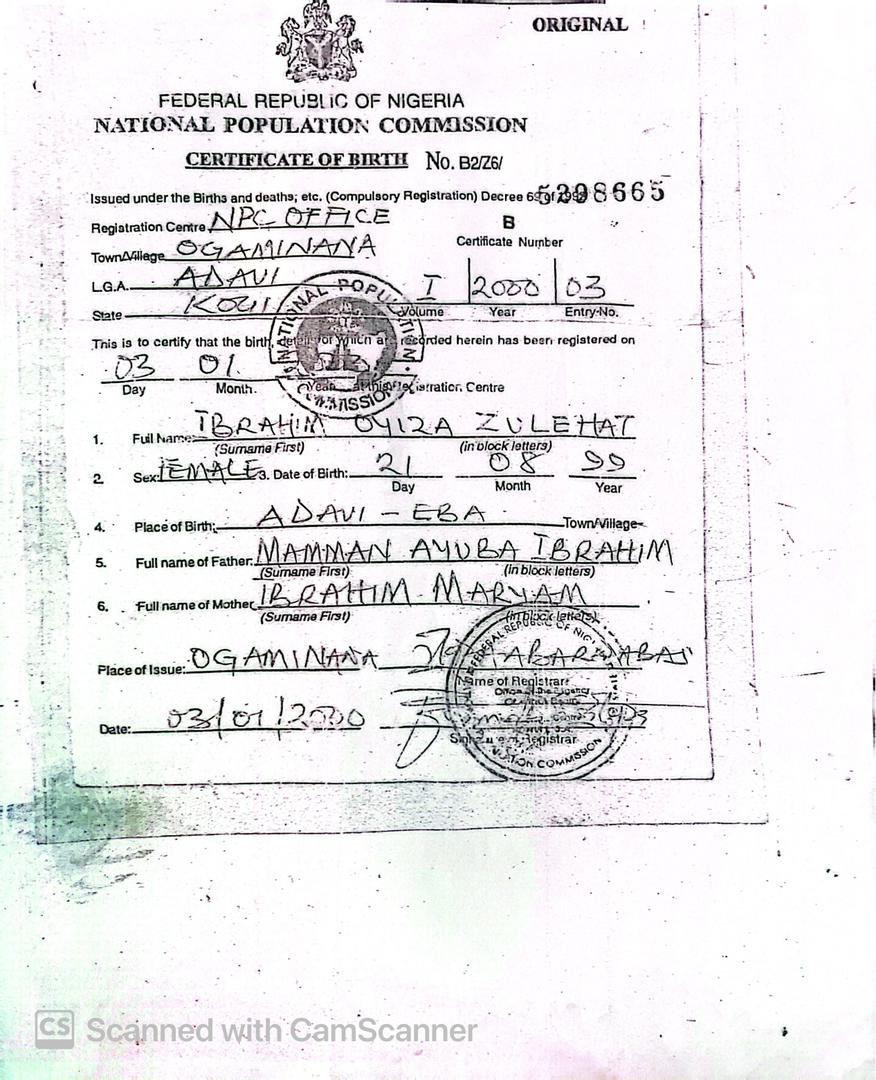 ORIGINAL
FEDERAL REPUBLIC OF NIGERIA
NATIONAL POPULATION COMMISSION
CERTIFICATE OF BIRTH No. B2/Z6/
Issued under the Births and deaths; etc. (Compulsory Registration) Decree 69 of
Registration Centre NPC OFFICE
B
Town/Village OGAMINANA
Certificate Number
L.G.A. ADAVI
I 2000 03
State KOGI
Volume Year Entry No.
This is to certify that the birth, details for which are recorded herein has been registered on
03 01
Day Month. Year at this Registration Centre
1. Full Name: IBRAHIM OYIZA ZULEHAT
(Surname First) (in block letters)
2. Sex: FEMALE 3. Date of Birth: 21 08 99
Day Month Year
4. Place of Birth: ADAVI - EBA Town/Village
5. Full name of Father: MAMMAN AYUBA IBRAHIM
(Surname First) (in block letters)
6. Full name of Mother IBRAHIM MARYAM
(Surname First) (in block letters)
Place of Issue: OGAMINANA
Name of Registrar
Date: 03/01/2000
Signature of Registrar
NATIONAL POPULATION COMMISSION
FEDERAL REPUBLIC OF NIG
CS Scanned with CamScanner